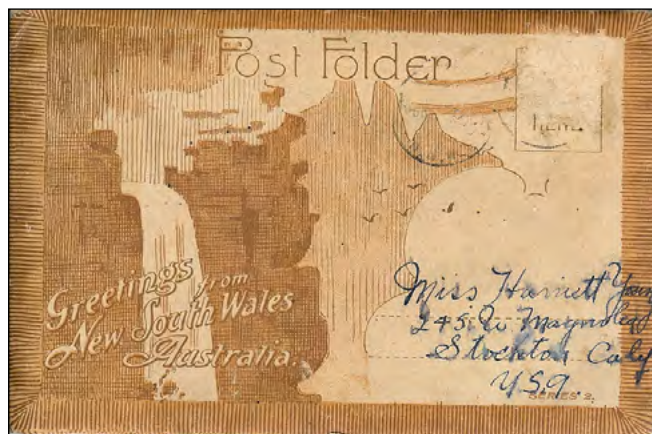 Post Folder
Greetings from
New South Wales
Australia.
Miss Harriett Young
245 W Magnolia
Stockton Caly
U.S.A.
SERIES 2.